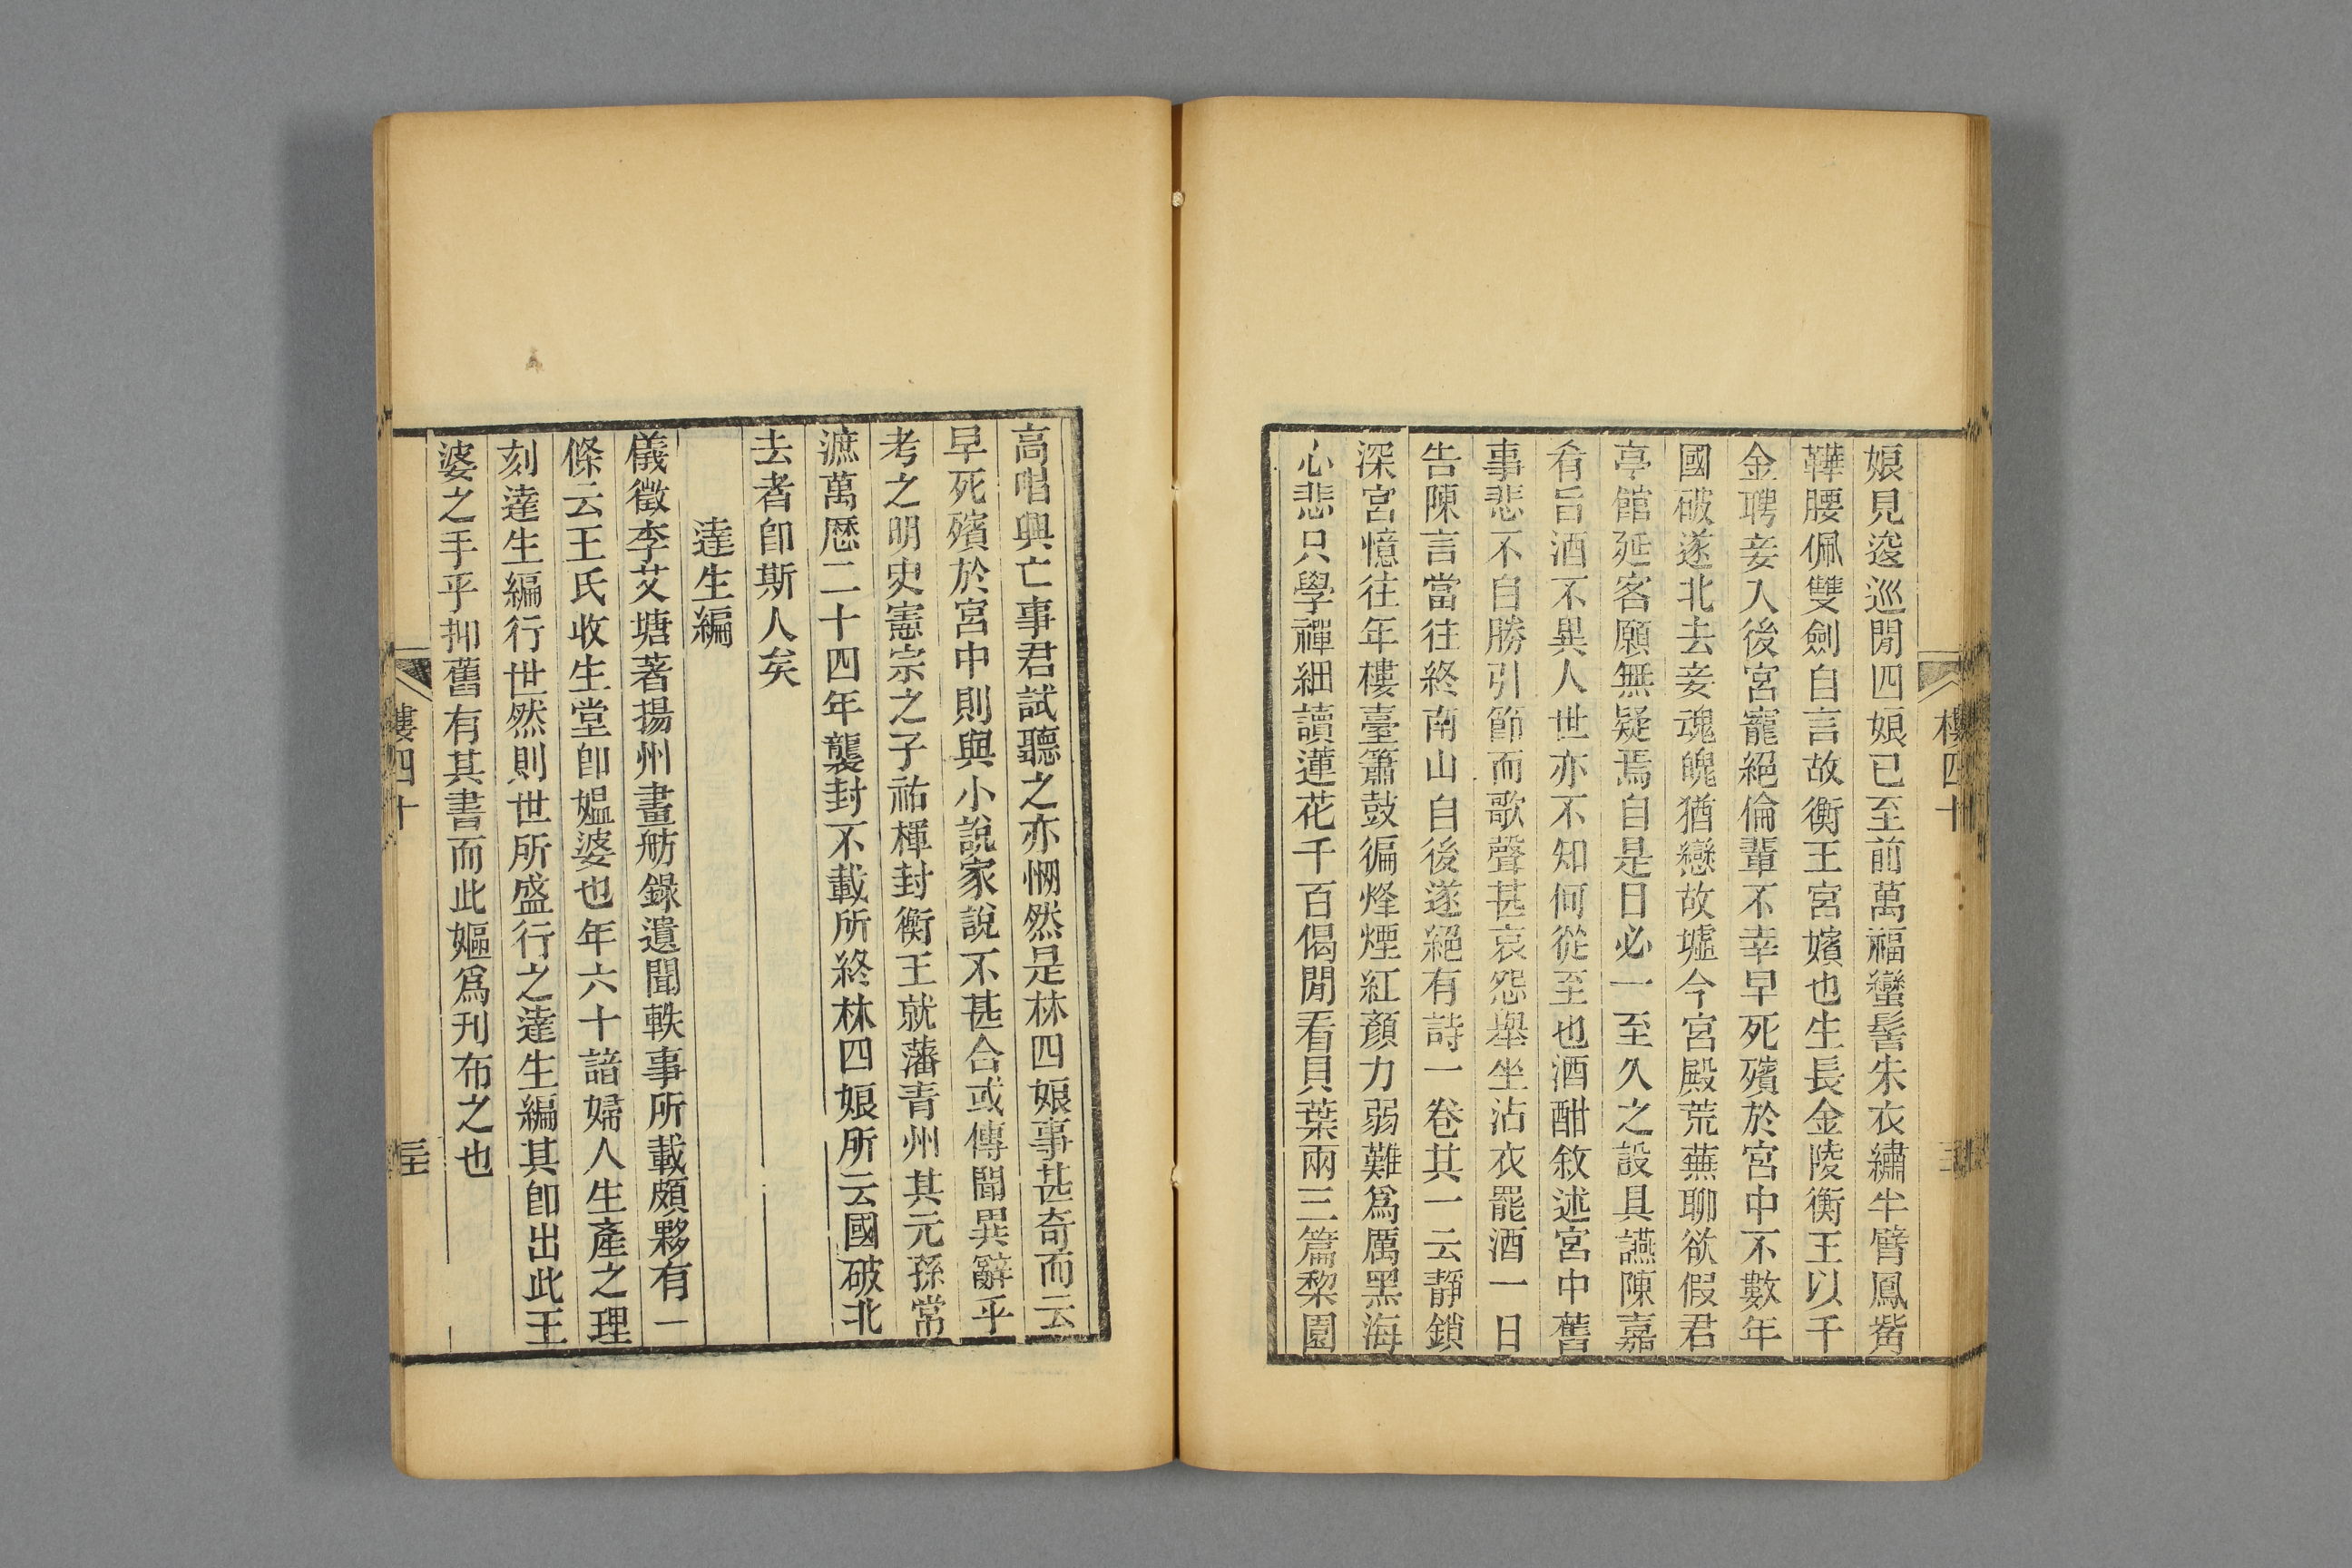 娘見逡巡間四娘已至前萬福蠻髻朱衣繡半臂鳳觜
鞾腰佩雙劍自言故衡王宮嬪也生長金陵衡王以千
金聘妾入後宮寵絕倫輩不幸早死殯於宮中不數年
國破遂北去妾魂魄猶戀故墟今宮殿荒蕪聊欲假君
亭館延客願無疑焉自是日必一至久之設具讌陳嘉
肴旨酒不異人世亦不知何從至也酒酣敘述宮中舊
事悲不自勝引節而歌聲甚哀怨舉坐沾衣罷酒一日
告陳言當往終南山自後遂絕有詩一卷其一云靜鎖
深宮憶往年樓臺簫鼓徧烽煙紅顏力弱難爲厲黑海
心悲只學禪細讀蓮花千百偈閒看貝葉兩三篇黎園
高唱興亡事君試聽之亦惘然是林四娘事甚奇而云
早死殯於宮中則與小說家說不甚合或傳聞異辭乎
考之明史憲宗之子祐楎封衡王就藩青州其元孫常
㵂萬歷二十四年襲封不載所終林四娘所云國破北
去者卽斯人矣
達生編
儀徵李艾塘著揚州畫舫錄遺聞軼事所載頗夥有一
條云王氏收生堂卽媪婆也年六十諳婦人生產之理
刻達生編行世然則世所盛行之達生編其卽出此王
婆之手乎抑舊有其書而此嫗爲刊布之也
樓四十